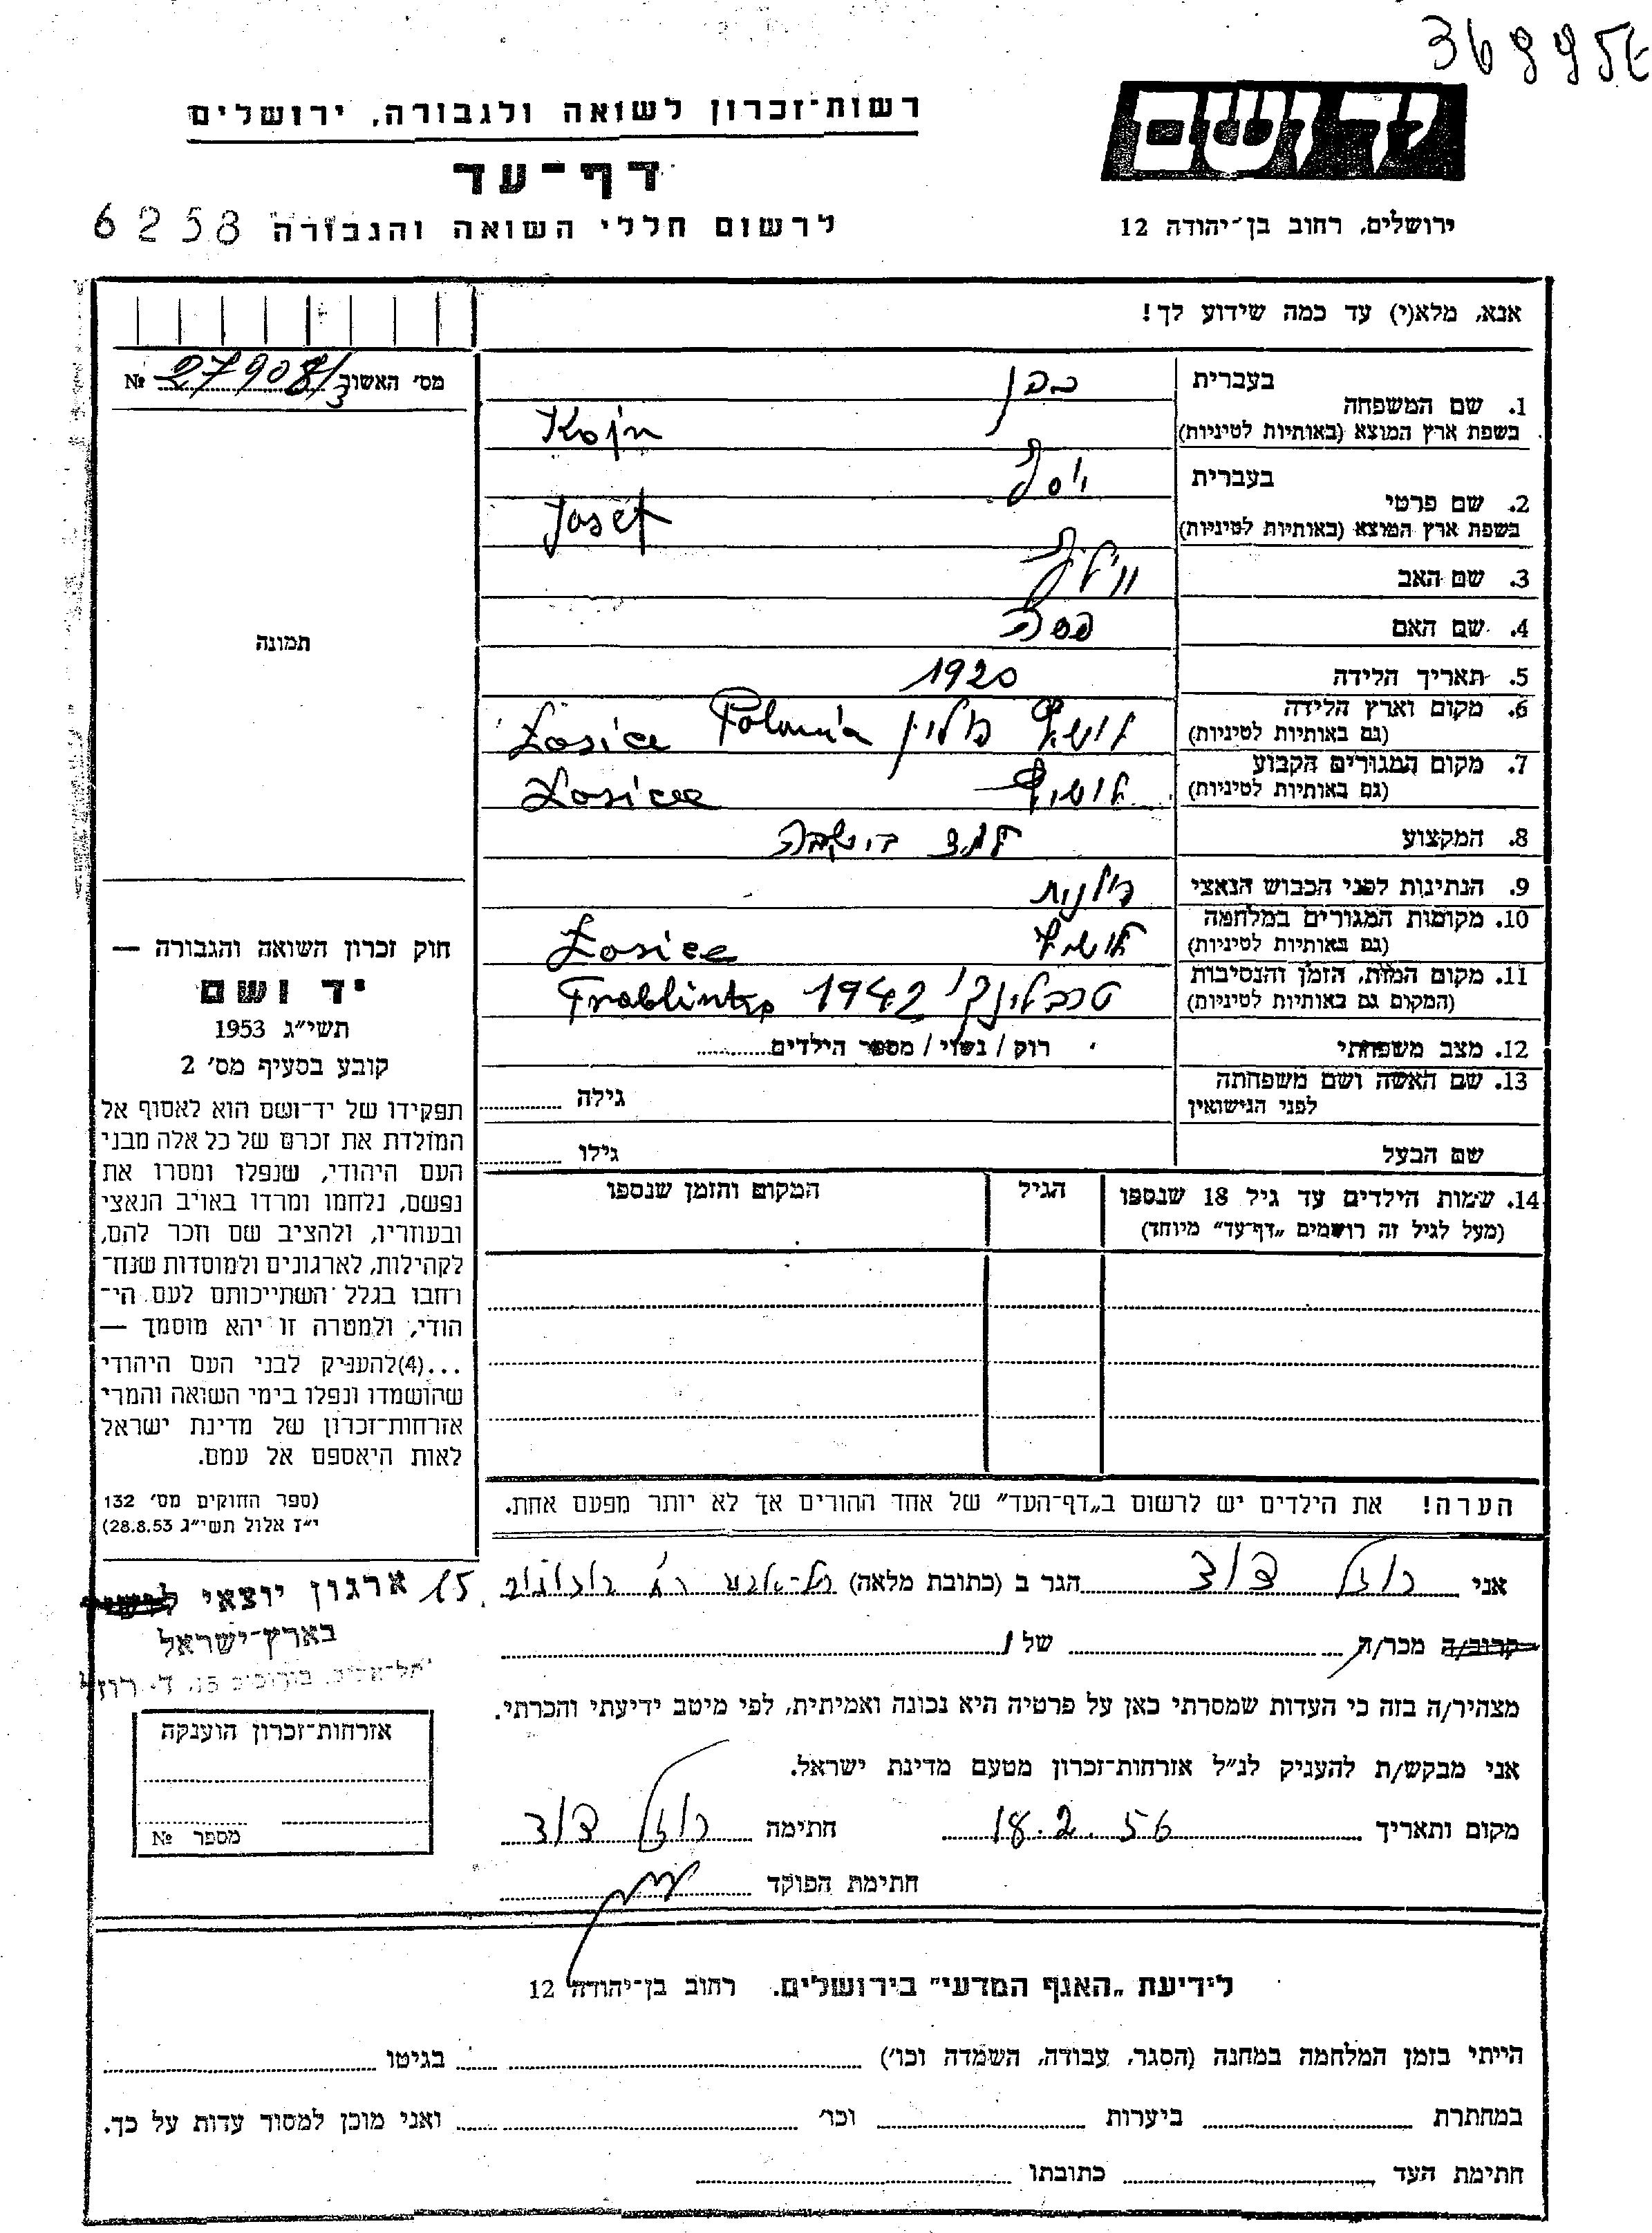 369957
יד ושם
רשות־זכרון לשואה ולגבורה, ירושלים
דף־עד
ירושלים, רחוב בן־יהודה 12
לרשום חללי השואה והגבורה 6258
אנא, מלא(י) עד כמה שידוע לך!
מס׳ האשור 27908/3 №
תמונה
1. שם המשפחה
בעברית כהן
בשפת ארץ המוצא (באותיות לטיניות) Kojn
2. שם פרטי
בעברית יוסף
בשפת ארץ המוצא (באותיות לטיניות) Josef
3. שם האב וועלף
4. שם האם
5. תאריך הלידה 1920
6. מקום וארץ הלידה
(גם באותיות לטיניות) לושיץ פולין Polonia Łosice
7. מקום המגורים הקבוע
(גם באותיות לטיניות) לושיץ Łosice
8. המקצוע
9. הנתינות לפני הכבוש הנאצי פולנית
10. מקומות המגורים במלחמה
(גם באותיות לטיניות) לושיץ Łosice
11. מקום המות, הזמן והנסיבות
(המקום גם באותיות לטיניות) טרבלינקי 1942 Treblinka
12. מצב משפחתי רוק / נשוי / מספר הילדים
13. שם האשה ושם משפחתה
לפני הנישואין גילה
שם הבעל גילו
14. שמות הילדים עד גיל 18 שנספו
(מעל לגיל זה רושמים „דף־עד״ מיוחד)
הגיל
המקום והזמן שנספו
הערה! את הילדים יש לרשום ב„דף־העד״ של אחד ההורים אך לא יותר מפעם אחת.
חוק זכרון השואה והגבורה —
יד ושם
תשי״ג 1953
קובע בסעיף מס׳ 2
תפקידו של יד־ושם הוא לאסוף אל
המולדת את זכרם של כל אלה מבני
העם היהודי, שנפלו ומסרו את
נפשם, נלחמו ומרדו באויב הנאצי
ובעוזריו, ולהציב שם וזכר להם,
לקהילות, לארגונים ולמוסדות שנח־
רחבו בגלל השתייכותם לעם הי־
הודי, ולמטרה זו יהא מוסמך —
...(4) להעניק לבני העם היהודי
שהושמדו ונפלו בימי השואה והמרי
אזרחות־זכרון של מדינת ישראל
לאות היאספם אל עמם.
(ספר החוקים מס׳ 132
י״ז אלול תשי״ג 28.8.53)
אני רוזל דוד הגר ב (כתובת מלאה) תל־אביב רח׳ 15
קרוב/ה מכר/ה של
מצהיר/ה בזה כי העדות שמסרתי כאן על פרטיה היא נכונה ואמיתית, לפי מיטב ידיעתי והכרתי.
אני מבקש/ת להעניק לנ״ל אזרחות־זכרון מטעם מדינת ישראל.
מקום ותאריך 18.2.56 חתימה רוזל דוד
חתימת הפוקד
ארגון יוצאי לושיץ
בארץ־ישראל
תל־אביב, 15, ד. רוזל
אזרחות־זכרון הוענקה
מספר №
לידיעת „האגף המדעי״ בירושלים. רחוב בן־יהודה 12
הייתי בזמן המלחמה במחנה (הסגר, עבודה, השמדה וכו׳) בגיטו
במחתרת ביערות וכו׳ ואני מוכן למסור עדות על כך.
חתימת העד כתובתו